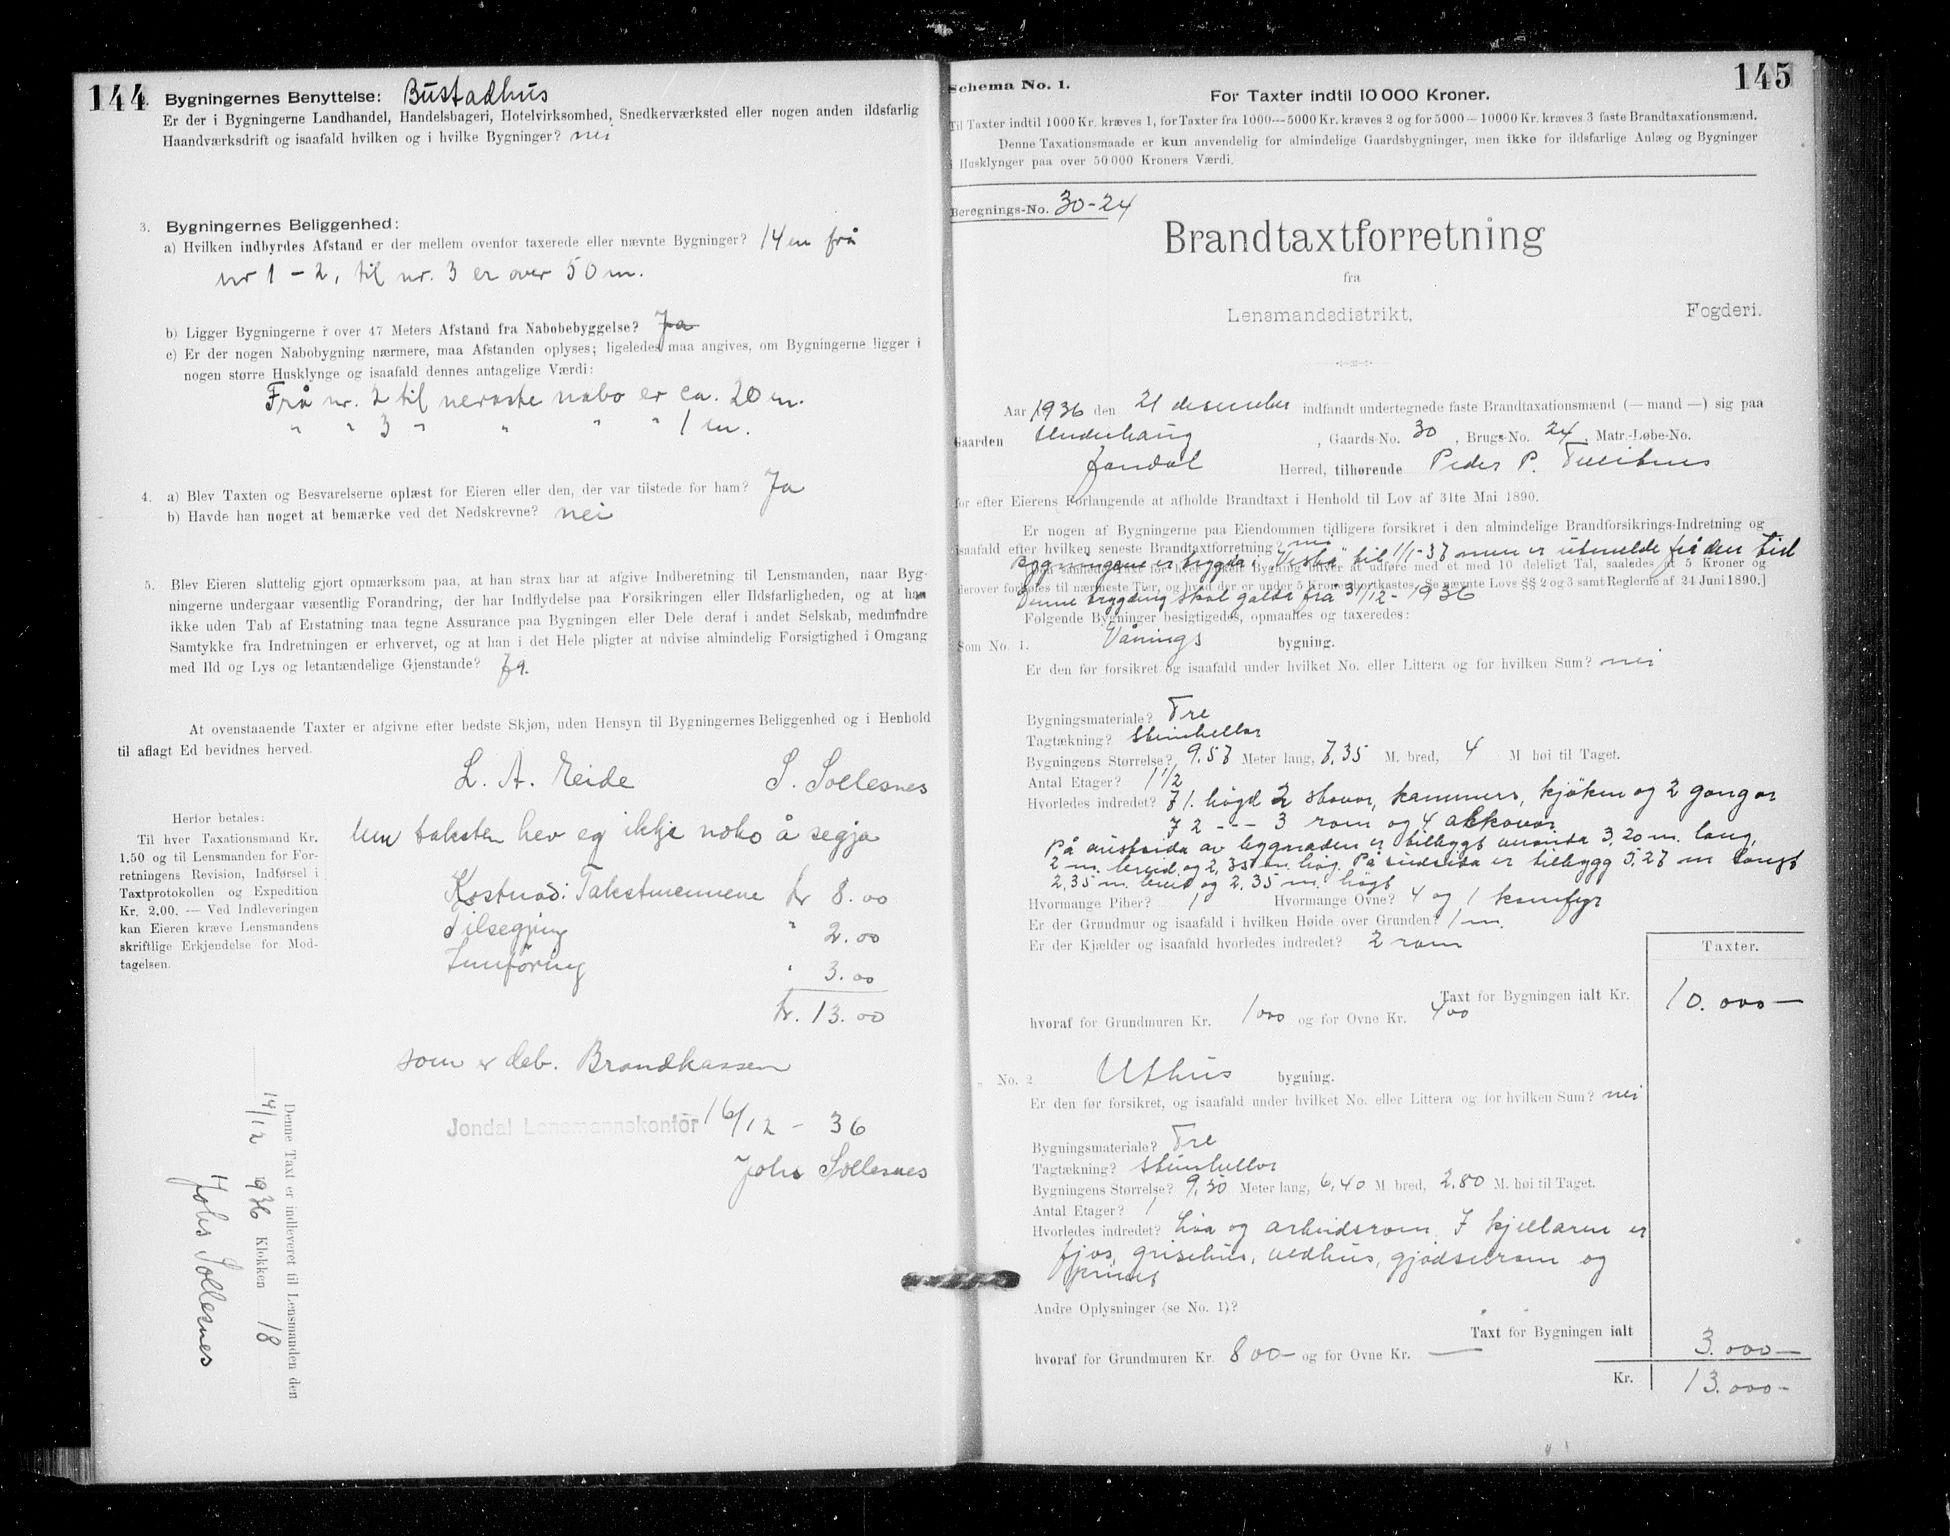 144
Bygningernes Benyttelse: Bustadhus
Er der i Bygningerne Landhandel, Handelsbageri, Hotelvirksomhed, Snedkerværksted eller nogen anden ildsfarlig
Haandværksdrift og isaafald hvilken og i hvilke Bygninger? nei
3. Bygningernes Beliggenhed:
a) Hvilken indbyrdes Afstand er der mellem ovenfor taxerede eller nævnte Bygninger? 14 m frå
nr 1 - 2, til nr. 3 er over 50 m.
b) Ligger Bygningerne i over 47 Meters Afstand fra Nabobebyggelse? Ja
c) Er der nogen Nabobygning nærmere, maa Afstanden oplyses; ligeledes maa angives, om Bygningerne ligger i
nogen større Husklynge og isaafald dennes antagelige Værdi:
Frå nr. 2 til næraste nabo er ca. 20 m.
" " 3 " " " " 1 m.
4. a) Blev Taxten og Besvarelserne oplæst for Eieren eller den, der var tilstede for ham? Ja
b) Havde han noget at bemærke ved det Nedskrevne? nei
5. Blev Eieren sluttelig gjort opmærksom paa, at han strax har at afgive Indberetning til Lensmanden, naar Byg-
ningerne undergaar væsentlig Forandring, der har Indflydelse paa Forsikringen eller Ildsfarligheden, og at han
ikke uden Tab af Erstatning maa tegne Assurance paa Bygningen eller Dele deraf i andet Selskab, medmindre
Samtykke fra Indretningen er erhvervet, og at han i det Hele pligter at udvise almindelig Forsigtighed i Omgang
med Ild og Lys og letantændelige Gjenstande? Ja.
At ovenstaaende Taxter er afgivne efter bedste Skjøn, uden Hensyn til Bygningernes Beliggenhed og i Henhold
til aflagt Ed bevidnes herved.
L. A. Eide S. Sollesnes
Herfor betales:
Til hver Taxationsmand Kr.
1.50 og til Lensmanden for For-
retningens Revision, Indførsel i
Taxtprotokollen og Expedition
Kr. 2.00. — Ved Indleveringen
kan Eieren kræve Lensmandens
skriftlige Erkjendelse for Mod-
tagelsen.
Um taksten hev eg ikkje noko å segja
Kostnad: Takstmennene kr 8.00
Tilsegjing " 2.00
Innføring " 3.00
kr. 13.00
som er deb. Brandkassen
Jondal Lensmannskontor 16/12 - 36
Johs Sollesnes
Denne Taxt er indleveret til Lensmanden den
14/12 1936 Klokken 18
Johs Sollesnes
145
Schema No. 1.
For Taxter indtil 10 000 Kroner.
Til Taxter indtil 1000 Kr. kræves 1, for Taxter fra 1000—5000 Kr. kræves 2 og for 5000—10000 Kr. kræves 3 faste Brandtaxationsmænd.
Denne Taxationsmaade er kun anvendelig for almindelige Gaardsbygninger, men ikke for ildsfarlige Anlæg og Bygninger
i Husklynger paa over 50 000 Kroners Værdi.
Beregnings-No. 30-24
Brandtaxtforretning
fra
Lensmandsdistrikt, Fogderi.
Aar 1936 den 21 desember indfandt undertegnede faste Brandtaxationsmænd (— mand —) sig paa
Gaarden Underhaug, Gaards-No. 30, Brugs-No. 24, Matr.-Løbe-No.
Jondal Herred, tilhørende Peder P.
for efter Eierens Forlangende at afholde Brandtaxt i Henhold til Lov af 31te Mai 1890.
Er nogen af Bygningerne paa Eiendommen tidligere forsikret i den almindelige Brandforsikrings-Indretning og
isaafald efter hvilken seneste Brandtaxtforretning? nei
Bygningane er trygda i "Vesta" til 1/1-37 men er utmelde frå den tid
derover forhøies til nærmeste Tier, og hvad der er under 5 Kroner bortkastes. Se nævnte Lovs §§ 2 og 3 samt Reglerne af 24 Juni 1890.]
Denne trygding skal gjelda frå 31/12-1936
Følgende Bygninger besigtigedes, opmaaltes og taxeredes:
Som No. 1. Vånings bygning.
Er den før forsikret og isaafald under hvilket No. eller Littera og for hvilken Sum? nei
Bygningsmateriale? Tre
Tagtækning? Steinhellor
Bygningens Størrelse? 9.57 Meter lang, 7,35 M. bred, 4 M høi til Taget.
Antal Etager? 1 1/2
Hvorledes indredet? I 1. høgd 2 stovor, kammers, kjøken og 2 gangar
I 2 - - - 3 rom og 4 alkovar
På austsida av bygnaden er tilbygt veranda 3,20 m. lang,
2 m. breid og 2,35 m. høg. På sudsida er tilbygg 5,27 m langt
2,35 m. breit og 2.35 m. høgt
Hvormange Piber? 1 Hvormange Ovne? 4 og 1 komfyr
Er der Grundmur og isaafald i hvilken Høide over Grunden? 1 m.
Er der Kjælder og isaafald hvorledes indredet? 2 rom
Taxter.
Taxt for Bygningen ialt Kr. 10.000 —
hvoraf for Grundmuren Kr. 1000 og for Ovne Kr. 400
" No. 2 Uthus bygning.
Er den før forsikret, og isaafald under hvilket No. eller Littera og for hvilken Sum? nei
Bygningsmateriale? Tre
Tagtækning? Steinhellor
Bygningens Størrelse? 9,30 Meter lang, 6,40 M bred, 2.80 M. høi til Taget.
Antal Etager? 1
Hvorledes indredet? Løa og arbeidsrom. I kjellaren er
fjos, grisehus, vedhus, gjødselrom og
Andre Oplysninger (se No. 1)?
Taxt for Bygningen ialt 3.000 —
hvoraf for Grundmuren Kr. 800 — og for Ovne Kr. —
Kr. 13.000 -